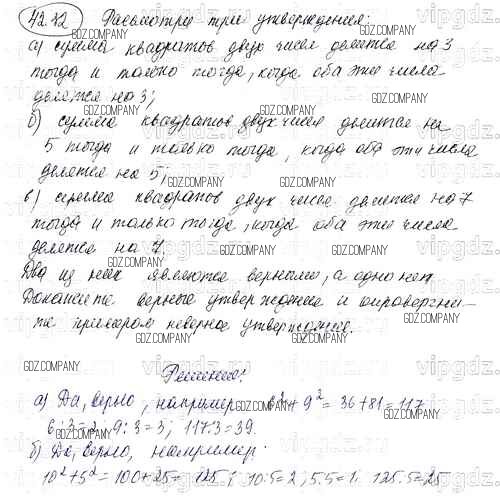 42.12 Рассмотрим три утверждения:
а) сумма квадратов двух чисел делится на 3
тогда и только тогда, когда оба эти числа
делятся на 3;
б) сумма квадратов двух чисел делится на
5 тогда и только тогда, когда оба эти числа
делятся на 5;
в) сумма квадратов двух чисел делится на 7
тогда и только тогда, когда оба эти числа
делятся на 7.
Два из них являются верными, а одно нет.
Докажите верные утверждения и опровергни-
те примером неверное утверждение.
Решение:
а) Да, верно, например 6²+9²=36+81=117
6:3=2, 9:3=3; 117:3=39.
б) Да, верно, например:
10²+5²=100+25=125; 10:5=2; 5:5=1; 125:5=25
GDZ.COMPANY
vipgdz.ru